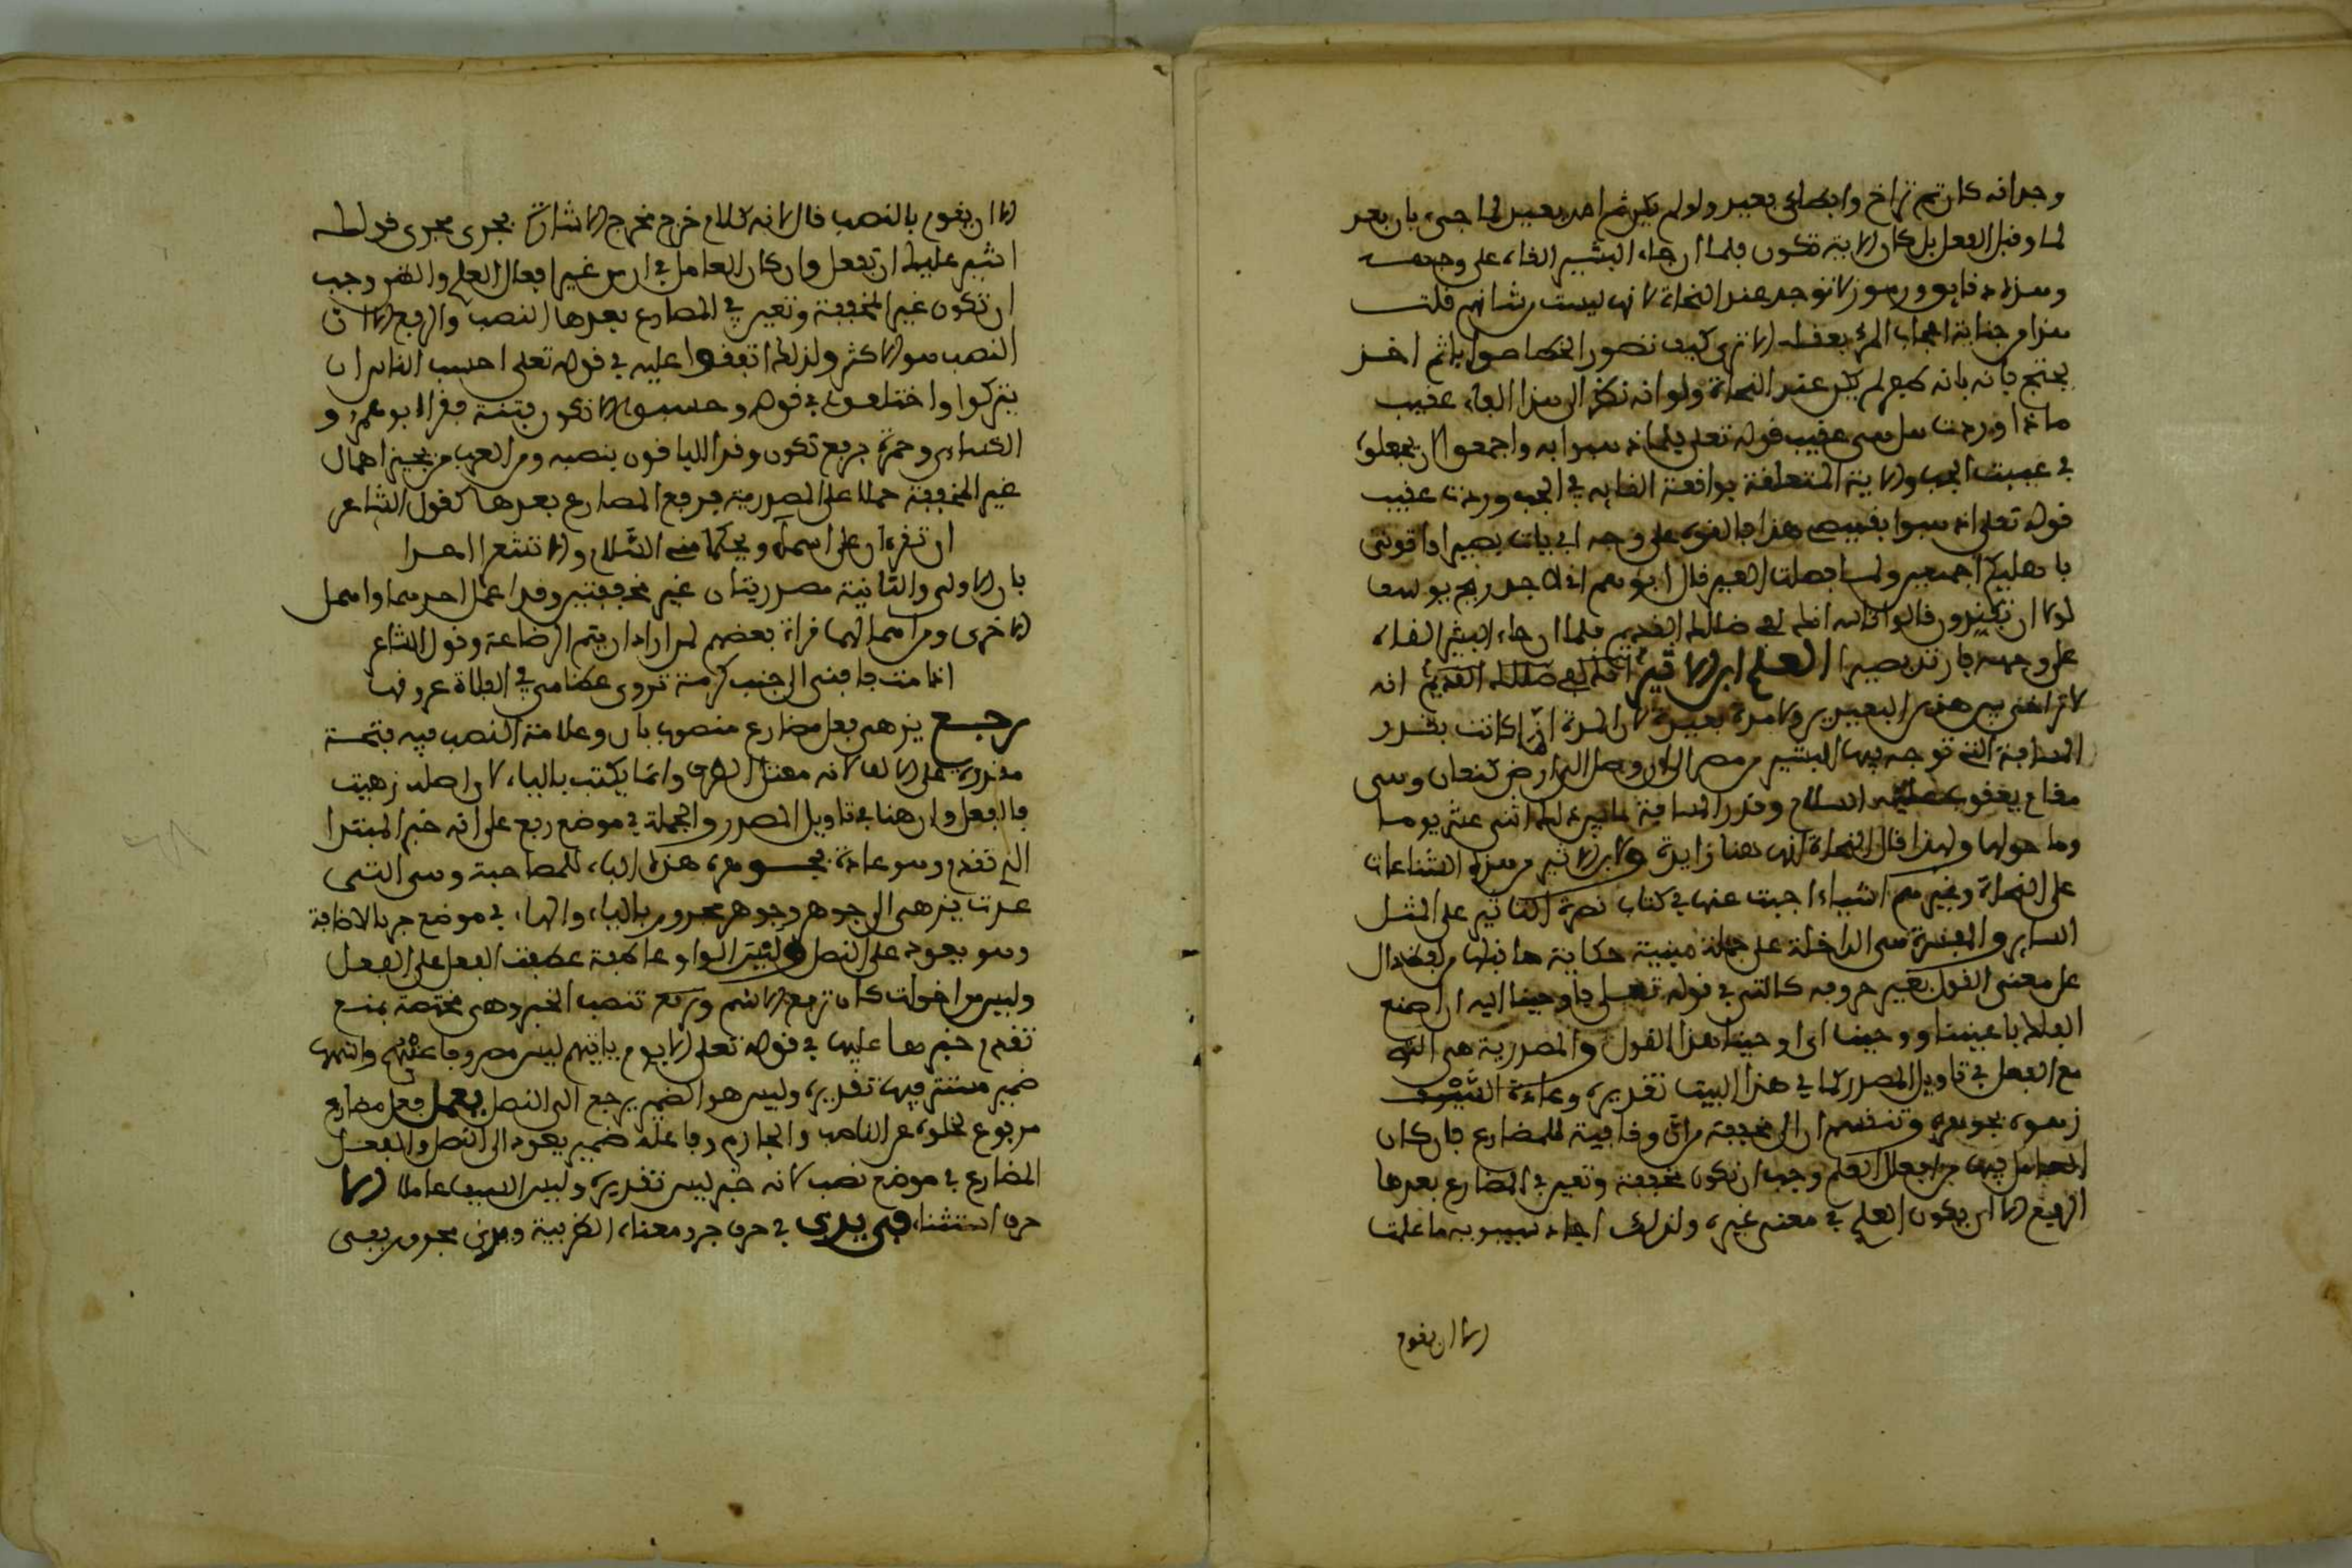 وجد انه كان ثم تراخ وابطاء بعيد ولو لم يكن ثم امد بعيد لما جىء بان بعد
لما وقبل الفعل بل كان الاية تكون فلما جاء البشير القاه على وجهه
وهذه دقايق ورموز لا توجد عند النحاة لانها ليست من شانهم قلت
هذا من جناية اعجاب المرء بعقله الا ترى كيف تصور الخطا صوابا ثم اخذ
يحتج بانه لم يكن عند النحاة ولو انه نظر الى هذا الفاء عقيب
ماذا وردت عقيب قوله تعلى فلما ذهبوا به واجمعوا ان يجعلوه
في غيبت الجب والاية المتعلقة بواقعة القايه في الجب وردت عقيب
قوله تعلى اذهبوا بقميصي هذا فالقوه على وجه ابي يات بصيرا واتوني
باهليكم اجمعين ولما فصلت العير قال ابوهم اني لاجد ريح يوسف
لولا ان تفندون قالوا تالله انك لفي ضلالك القديم فلما ان جاء البشير القاه
على وجهه فارتد بصيرا انك لفي ضلالك القديم انه
لا تراخي بين هذين البعيدين ولا مدة بعيدة لان المدة انما كانت بقدر
المسافة التي توجه فيها البشير من مصر الى ان وصل الى ارض كنعان وهي
مقام يعقوب عليه السلام وقدر المسافة اثنى عشر يوما
وما حولها ولهذا قال النحاة انها هنا زايدة ولابن الاثير من هذه الشناعات
على النحاة وغيرهم اشياء اجبت عنها في كتاب نصرة الثاير على المثل
الساير والمفسرة هي الداخلة على جملة مبينة حكاية ما قبلها من دال
على معنى القول بغير حروفه كالتي في قوله تعلى فاوحينا اليه ان اصنع
الفلك باعيننا ووحينا اي اوحينا هذا القول والمصدرية هي التي
مع الفعل في تاويل المصدر كما في هذا البيت تقديره وعادة السيف
زهوه بجوهره وتنقسم ان الى مخففة من ان وناصبة للمضارع فان كان
العامل فيها من افعال العلم وجب ان تكون مخففة وتعين في المضارع بعدها
الرفع الا ان يكون العلم في معنى غيره ولذلك اجاز سيبويه ما علمت
الا ان يقوم
الا ان يقوم بالنصب قال لانه كلام خرج مخرج الاشارة فجرى مجرى قولك
اشير عليك ان تفعل وان كان العامل في ان من غير افعال العلم والظن وجب
ان تكون غير المخففة وتعين في المضارع بعدها النصب والرفع الا ان
النصب هو الاكثر ولذلك اتفقوا عليه في قوله تعلى احسب الناس ان
يتركوا واختلفوا في قوله وحسبوا الا تكون فتنة فقرا ابو عمرو و
الكساءي وحمزة برفع تكون وقرا الباقون بنصبه ومن العرب من يجيز اهمال
غير المخففة حملا على المصدرية فيرفع المضارع بعدها كقول الشاعر
ان تقرءان على اسماء ويحكما مني السلام والا تشعرا احدا
فان الاولى والثانية مصدريتان غير مخففتين وقد اعمل احدهما واهمل
الاخرى ومن اهمالها قراة بعضهم لمن اراد ان يتم الرضاعة وقول الشاعر
اذا مت فادفني الى جنب كرمة تروي عظامي في الفلاة عروقها
رجع يزهى فعل مضارع منصوب بان وعلامة النصب فيه فتحة
مقدرة على الالف لانه معتل الطرف وانما يكتب بالياء لان اصله زهيت
فالفعل وان هنا في تاويل المصدر والجملة في موضع رفع على انه خبر المبتدا
الذي تقدم وهو عادة بجوهره هذه الباء للمصاحبة وهي التي
عدت يزهى الى جوهر وجوهر مجرور بالباء والهاء في موضع جر بالاضافة
وهو يعود على النصل وليس الواو عاطفة عطفت الفعل على الفعل
وليس من اخوات كان ترفع الاسم وتنصب الخبر وهي مختصة بمنع
تقدم خبرها عليها في قوله تعلى الا يوم ياتيهم ليس مصروفا عنهم واسمها
ضمير مستتر فيها تقديره وليس هو الضمير يرجع الى النصل يعمل فعل مضارع
مرفوع لخلوه عن الناصب والجازم وفاعله ضمير يعود الى النصل والفعل
المضارع في موضع نصب لانه خبر ليس تقديره وليس السيف عاملا الا
حرف استثناء في يدي في حرف جر ومعناه الظرفية ويدي مجرور بفي